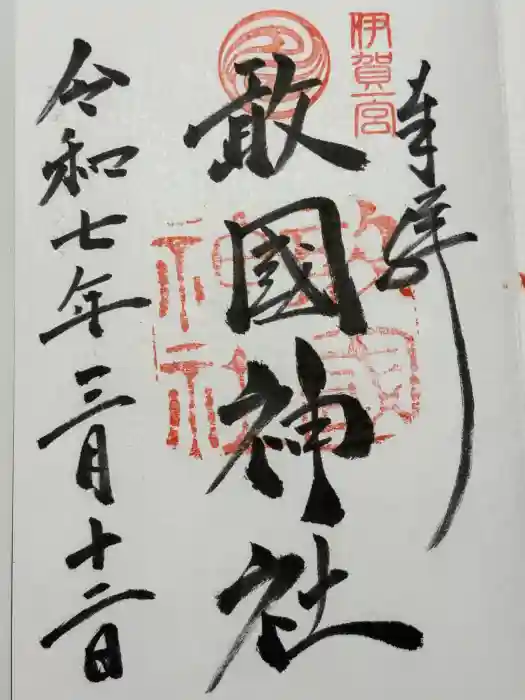 伊賀一宮
奉拝
敢國神社
敢國神社
令和七年三月十二日